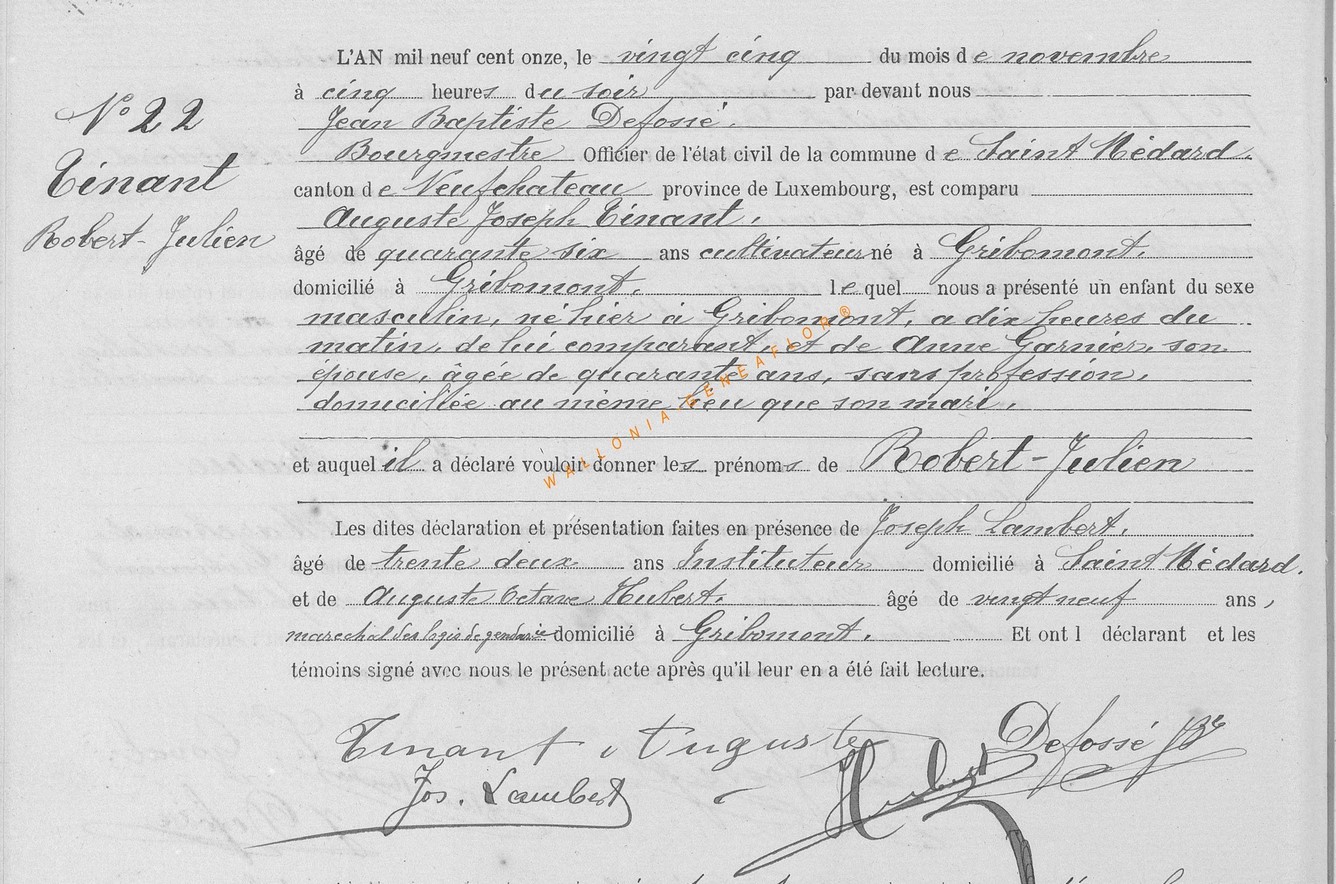 N° 22
Tinant
Robert-Julien
L'AN mil neuf cent onze, le vingt cinq du mois de novembre
à cinq heures du soir par-devant nous
Jean Baptiste Defossé.
Bourgmestre Officier de l'état civil de la commune de Saint Médard.
canton de Neufchateau province de Luxembourg, est comparu
Auguste Joseph Tinant.
âgé de quarante six ans cultivateur né à Gribomont.
domicilié à Gribomont. lequel nous a présenté un enfant du sexe
masculin, né hier à Gribomont, a dix heures du
matin, de lui comparant, et de Anne Garnier, son
épouse, âgée de quarante ans, sans profession,
domiciliée au même lieu que son mari.
et auquel il a déclaré vouloir donner les prénoms de Robert-Julien
Les dites déclaration et présentation faites en présence de Joseph Lambert.
âgé de trente deux ans Instituteur domicilié à Saint Médard.
et de Auguste Octave Hubert. âgé de vingt neuf ans,
marechal des logis de gendarie domicilié à Gribomont. Et ont l déclarant et les
témoins signé avec nous le présent acte après qu'il leur en a été fait lecture.
Tinant Auguste
Defossé JB
Jos. Lambert
Hubert
WALLONIA GENEAFLOR®